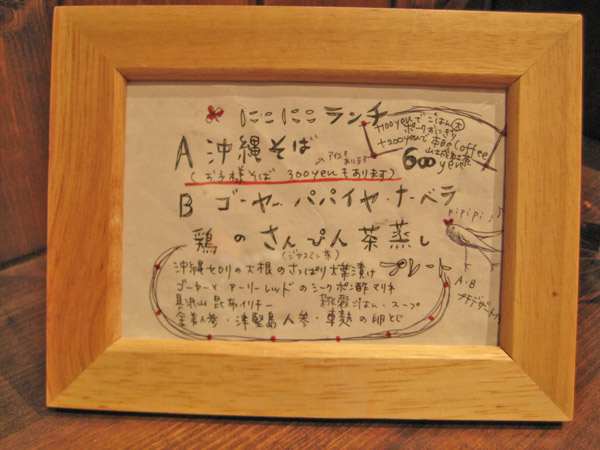 にこにこランチ
+100yenで ごはん大
ポークおにぎり
+200yenで 本日のCoffee
A 沖縄そば
600yen
(お子様そば 300yenもあります)
B ゴーヤー パパイヤ・ナーベラ
pipipi♪
鶏のさんぴん茶蒸し
(ジャスミン茶)
プレート
沖縄セロリの大根のさっぱり大葉漬け
A・B
プチデザート
ゴーヤーとアーリーレッドのシークポン酢マリネ
具沢山 昆布イリチー
雑穀ごはん・スープ
金美人参・津堅島人参・車麩の卵とじ